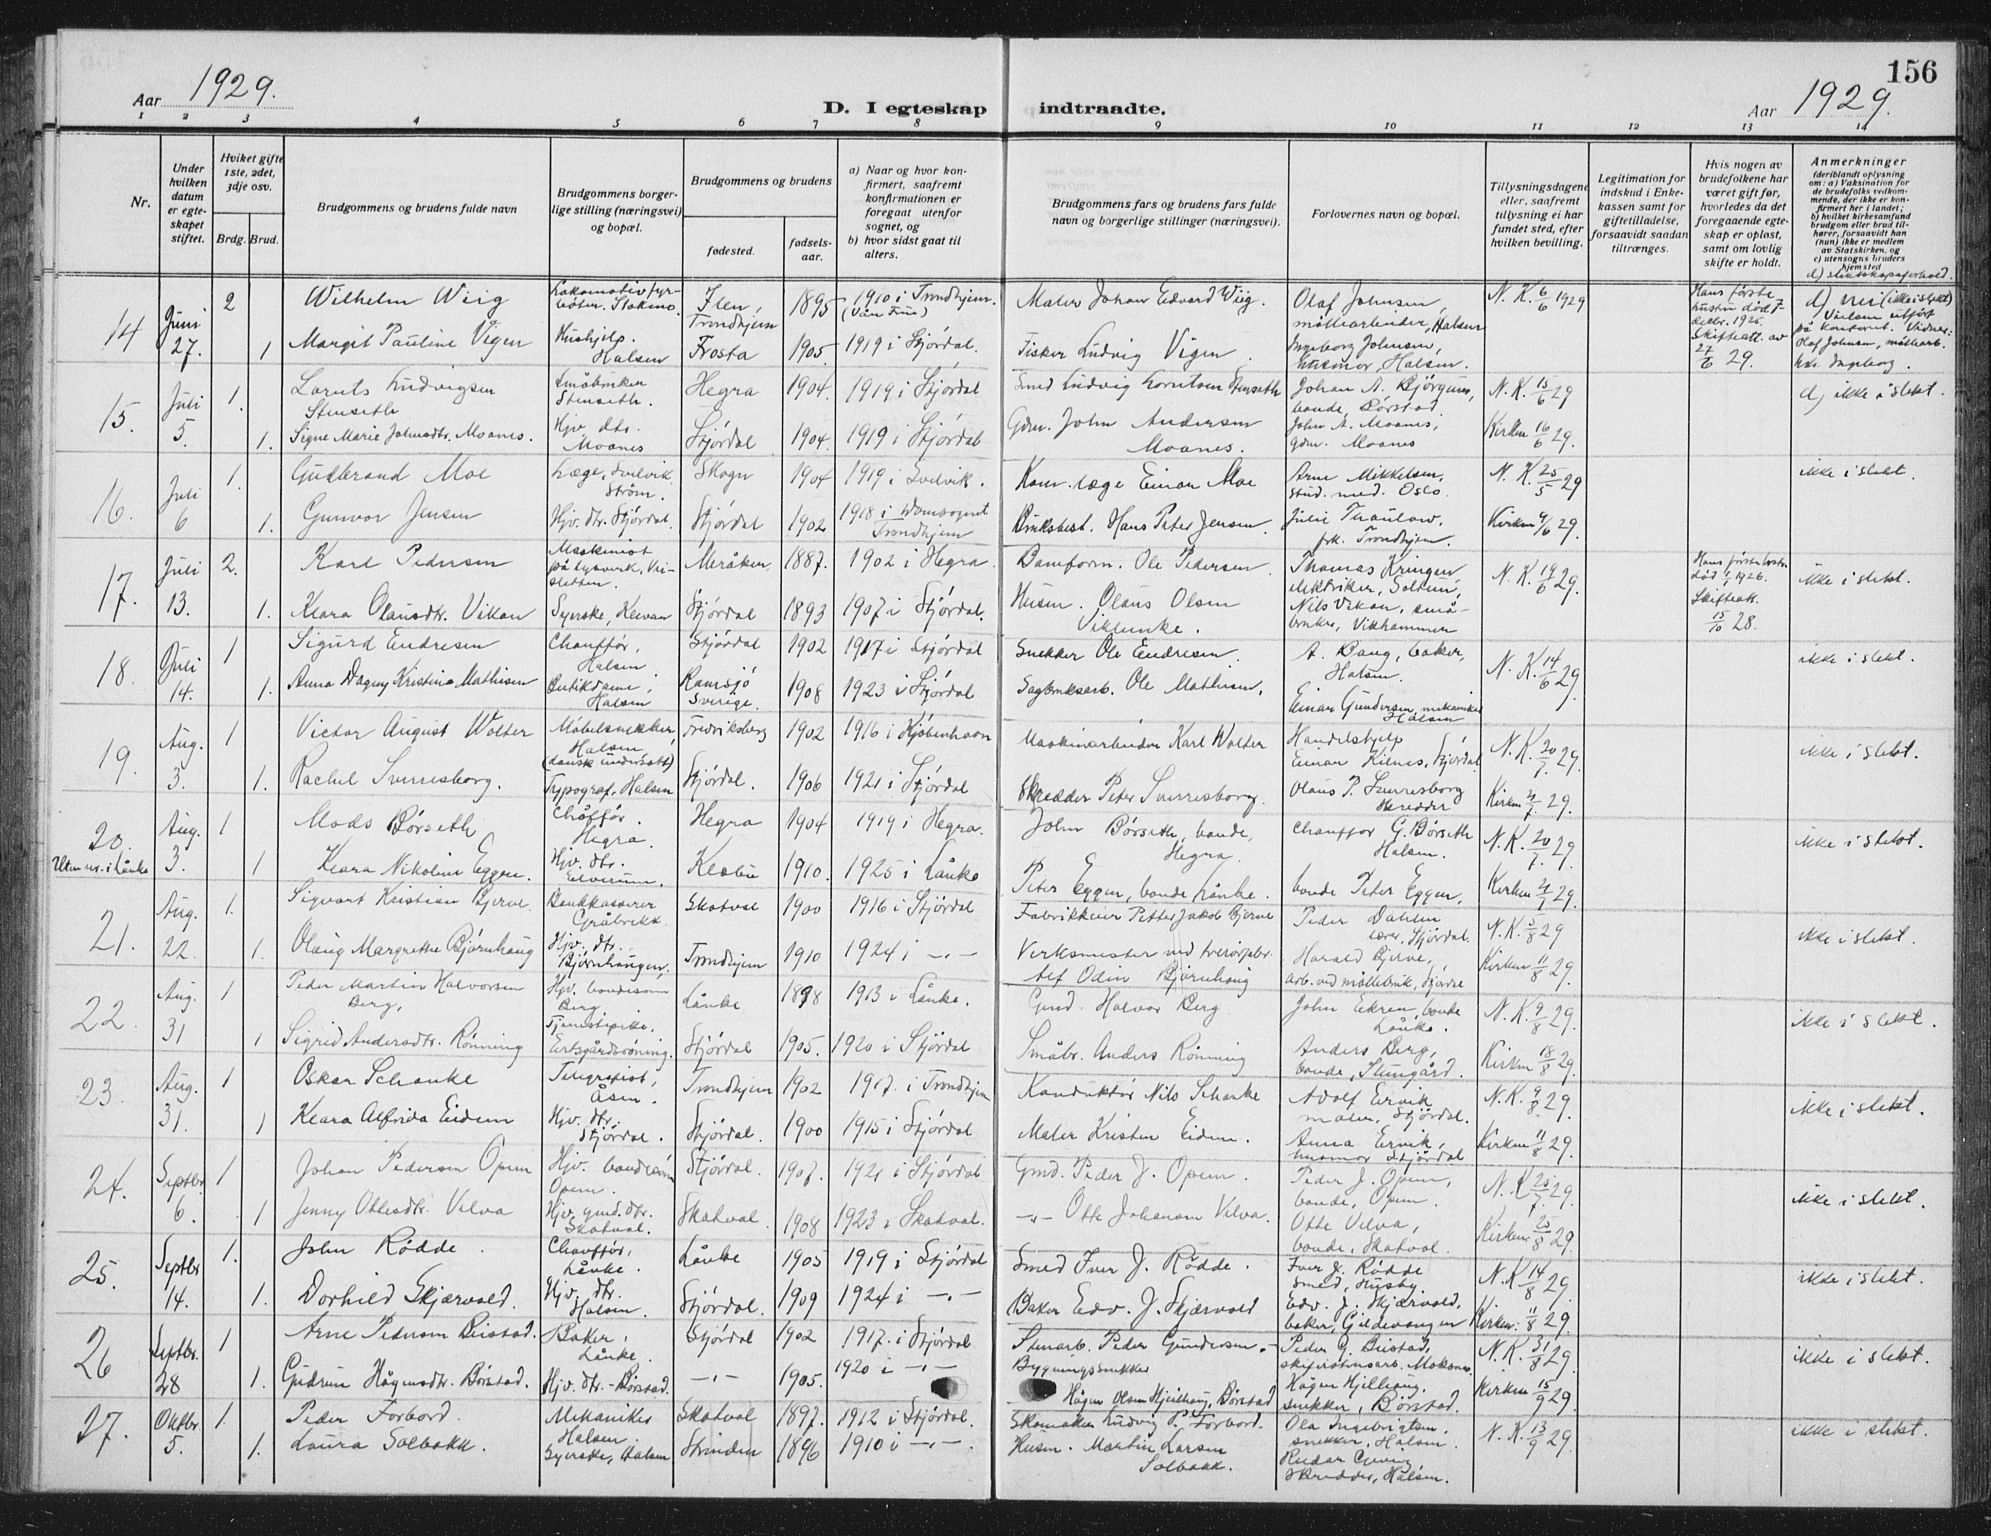 156
Aar 1929.
D. I egteskap indtraadte.
Aar 1929.
1 2 3 4 5 6 7 8 9 10 11 12 13 14
Nr.
Under hvilken datum er egteskapet stiftet.
Hviket gifte 1ste, 2det, 3dje osv.
Brdg. Brud.
Brudgommens og brudens fulde navn
Brudgommens borgerlige stilling (næringsvei) og bopæl.
Brudgommens og brudens
fødested.
fødselsaar.
a) Naar og hvor konfirmert, saafremt konfirmationen er foregaat utenfor sognet, og
b) hvor sidst gaat til alters.
Brudgommens fars og brudens fars fulde navn og borgerlige stillinger (næringsvei).
Forlovernes navn og bopæl.
Tillysningsdagene eller, saafremt tillysning ei har fundet sted, efter hvilken bevilling.
Legitimation for indskud i Enkekassen samt for giftetilladelse, forsaavidt saadan tiltrænges.
Hvis nogen av brudefolkene har været gift før, hvorledes da det foregaaende egteskap er opløst, samt om lovlig skifte er holdt.
Anmerkninger (deriblandt oplysning om: a) Vaksination for de brudefolks vedkommende, der ikke er konfirmert her i landet; b) hvilket kirkesamfund brudgom eller brud tilhører, forsaavidt han (hun) ikke er medlem av Statskirken, og c) utensogns bruders hjemsted
14 Juni 27. 2 Wilhelm Wiig Ilen, Trondhjem 1895 1910 i Trondhjem. Maler Johan Edvard Wiig. Olaf Johnsen, møllearbeider, Halsen N. K. 6/6 1929 Hans første
1 Margit Pauline Vigen Hushjelp. Halsen Frosta 1905 1919 i Stjørdal. Fisker Ludvig Vigen. Ingeborg Johnsen, husmor, Halsen.
15. Juli 5. 1. Lorents Ludvigsen Stenseth Småbruker Stenseth. Hegra 1904. 1919 i Stjørdal Smed Ludvig Lorntsen Stenseth Johan A. Bjørgum, bonde, Børstad. N. K. 15/6 29 d) ikke i slekt.
1. Signe Marie Johnsdtr. Moanes. Hjv. dtr. Moanes Stjørdal 1904. 1919 i Stjørdal Gdm. John Andersen Moanes. John A. Moanes, gdm. Moanes Kirken 16/6 29.
16. Juli 6 1. Gudbrand Moe Læge, Svelvik Strøm. Skogn 1904 1919 i Svelvik. Kom. læge Einar Moe Arne Mikkelsen, stud. med. Oslo. N. K. 25/5 29 ikke i slekt.
1. Gunvor Jensen Hjv. dtr. Stjørdal. Stjørdal 1902 1918 i Domsognet Trondhjem Bruksbest. Hans Peter Jensen. Julie Thaulow, frk. Trondhjem. Kirken 9/6 29.
17. Juli 13. 2. Karl Pedersen Maskinist Meråker. 1887. 1902 i Hegra. Baneform. Ole Pedersen Thomas Kringen elektriker, N. K. 19/6 29. Hans første hustru død 1/1 1926. Skifteatt. 15/10 28. ikke i slekt.
1. Klara Olausdtr. Vikan Syerske, Stjørdal 1893 1907 i Stjørdal. Husm. Olaus Olsen Viklenke. Nils Vikan, småbruker, Vikhammer
18. Juli 14. 1 Sigurd Endresen Chauffør, Halsen Stjørdal 1902 1917 i Stjørdal Snekker Ole Endresen. A. Bang, baker, Halsen. N. K. 14/6 29. ikke i slekt.
1. Anna Dagny Kristina Mathisen Butikdame, Halsen Ramsjö Sverige. 1908 1923 i Stjørdal Sagbruksarb. Ole Mathisen. Einar Gundersen, mekaniker Halsen
19. Aug. 3. 1 Victor August Wolter Møbelsnekker, Halsen (dansk undersått) Fredriksberg 1902 1916 i Kjøbenhavn Maskinarbeider Karl Wolter Handelshjelp Einar Kilnes, Stjørdal. N. K. 20/7 29. ikke i slekt.
1. Rachel Sverresborg. Typograf, Halsen Stjørdal. 1906 1921 i Stjørdal Skredder Peter Sverresborg. Olaus P. Sverresborg skredder Kirken 21/7 29.
20. Aug. 3. 1 Mads Børseth Chåffør. Hegra. Hegra 1904 1919 i Hegra. John Børseth, bonde, Hegra. Chauffør G. Børseth Halsen. N. K. 20/7 29. ikke i slekt.
1 Klara Nikoline Eggen. Hjv. dtr. Elverum. Klæbu 1910. 1925 i Lånke Peter Eggen, bonde Lånke. bonde Peter Eggen, Kirken 21/7 29.
21. Aug. 22. 1. Sigvart Kristian Bjerve Bankkasserer Gråbrekk. Skatval 1900 1916 i Stjørdal Fabrikkeier Petter Jakob Bjerve Peder Dahlen lærer, Stjørdal. N. K. 3/8 29 ikke i slekt.
1. Olaug Margrethe Bjørnhaug Hjv. dtr. Bjørnhaugen. Trondhjem 1910 1924 i -"- Verksmester ved Alf Odin Bjørnhaug Harald Bjerve, arb. ved møllebruk, Kirken 11/8 29.
22. Aug. 31 1 Peder Martin Halvorsen Berg, Hjv. bondesønn Berg Lånke 1898 1913 i Lånke. Gmd. Halvor Berg. John Ekren, bonde Lånke. N. K. 9/8 29. ikke i slekt.
1 Sigrid Andersdtr. Rønning Tjenestepike, Stjørdal 1905. 1920 i Stjørdal Småbr. Anders Rønning Anders Berg, bonde, Kirken 18/8 29.
23. Aug. 31. 1 Oskar Schanke Telegrafist, Åsen. Trondhjem 1902 1917. i Trondhjem Konduktør Nils Schanke Adolf Ervik maler, Stjørdal. N. K. 9/8 29. ikke i slekt.
1 Klara Alfrida Eidem Hjv. dtr. Stjørdal. Stjørdal. 1900 1915 i Stjørdal Maler Kristen Eidem. Anna Ervik, husmor Stjørdal Kirken 11/8 29.
24. Septbr. 6. 1 Johan Pedersen Opem Hjv. bondesønn Opem. Stjørdal. 1907. 1921 i Stjørdal Gmd. Peder J. Opem. Peder J. Opem, bonde, Opem. N. K. 25/7 29. ikke i slekt.
1 Jenny Ottesdtr. Velva Hjv. gmd. dtr. Skatval. Skatval. 1908 1923 i Skatval. -"- Otte Johansen Velva. Otte Velva, bonde, Skatval. Kirken 25/8 29.
25. Septbr. 14. 1. John Rødde. Chauffør, Lånke. Lånke 1905 1919 i Stjørdal Smed Iver J. Rødde. Iver J. Rødde smed, Husby. N. K. 14/8 29. ikke i slekt.
1. Dorhild Skjærvold. Hjv. dtr. Halsen. Stjørdal. 1909 1924 i -"- Baker Edv. J. Skjærvold Edv. J. Skjærvold, baker, Gildevangen Kirken: 11/8 29.
26 Septbr. 28 1 Arne Pedersen Beistad. Baker, Lånke. Stjørdal 1902 1917. i Stjørdal Stenarb. Peder Gundersen. Peder G. Beistad, N. K. 31/8 29. ikke i slekt.
1. Gudrun Hågensdtr. Børstad. Hjv. dtr. - Børstad. -"- 1905. 1920 i -"- Bygningssnekker Hågen Olsen Hjellhaug, Børstad Hågen Hjelhaug, snekker, Børstad. Kirken 15/9 29.
27. Oktbr. 5. 1. Peder Forbord. Mekaniker Halsen. Skatval 1897. 1912 i Stjørdal. Skomaker Ludvig P. Forbord. Ola Ingebrigtsen, snekker, Halsen. N. K. 13/9 29. ikke i slekt.
1. Laura Solbakk. Syerske, Halsen Strinden 1896 1910 i -"- Husm. Martin Larsen Solbakk. Reidar skredder, Halsen.